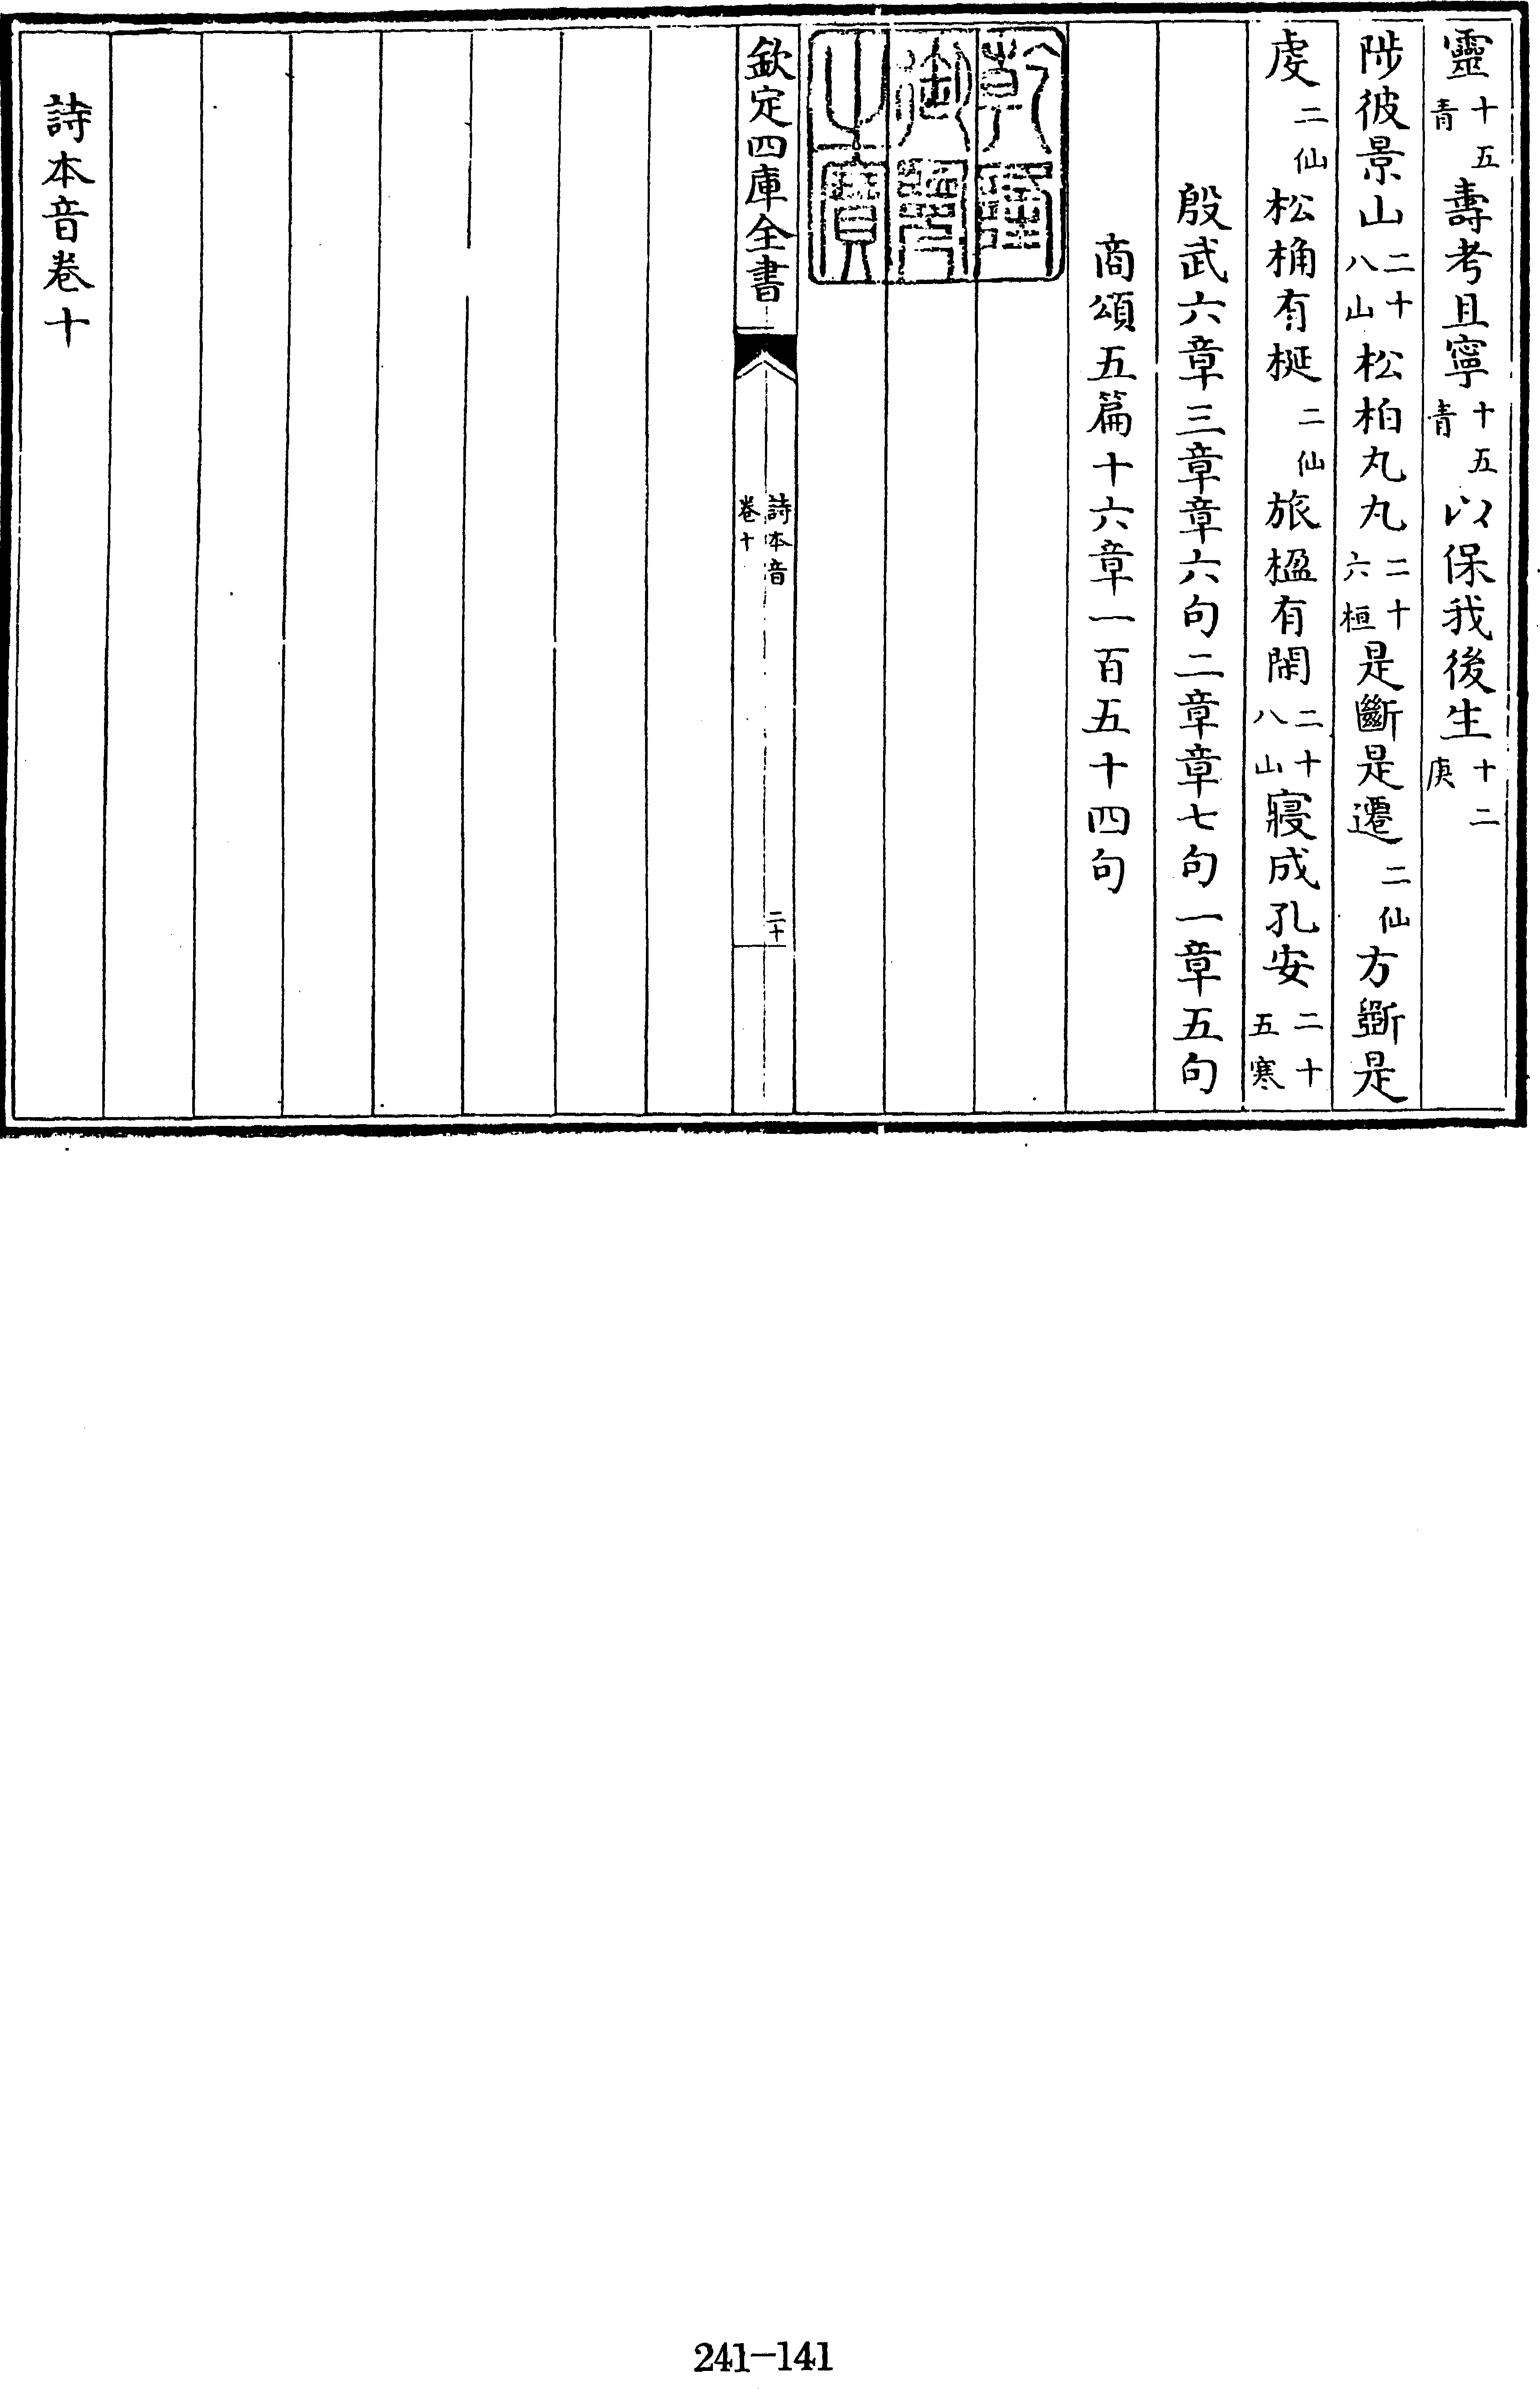 靈十五青壽考且寧十五青以保我後生十二庚
陟彼景山二十八山松柏丸丸二十六桓是斷是遷二仙方斲是
虔二仙松桷有梴二仙旅楹有閑二十八山寢成孔安二十五寒
殷武六章三章章六句二章章七句一章五句
商頌五篇十六章一百五十四句
乾隆御覽之寶
欽定四庫全書
詩本音
卷十
二十
詩本音卷十
241-141